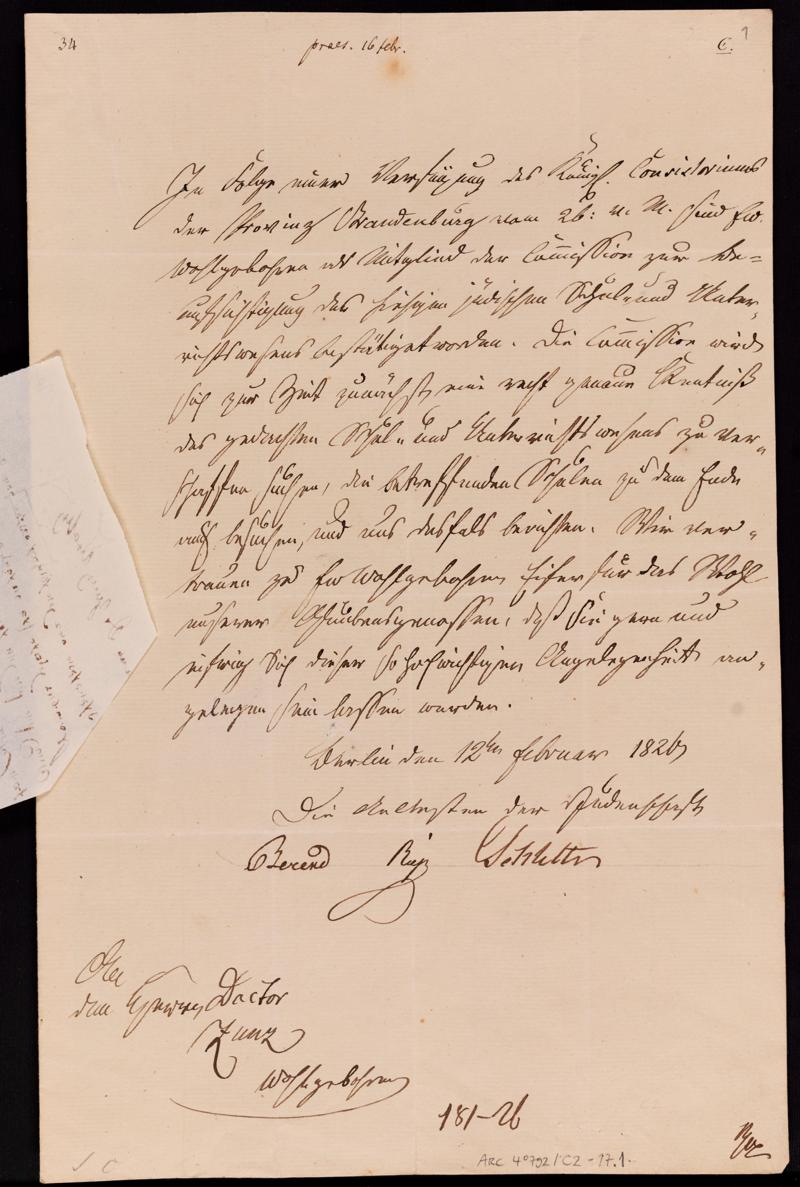 34 praes. 16 febr. C. 1
In Folge einer Verfügung des Königl. Consistoriums
der Provinz Brandenburg vom 26: v. M. sind Ew.
Wohlgebohren als Mitglied der Commission zur Be=
aufsichtigung des hiesigen jüdischen Schul- und Unter-
richtswesens bestätiget worden. Die Commission wird
sich zur Zeit zunächst eine recht genaue Kentniß
des gedachten Schul- und Unterrichtswesens zu ver-
schaffen suchen, die betreffenden Schulen zu dem Ende
auch besuchen, und uns desfals berichten. Wir ver-
trauen zu Ew Wohlgebohren Eifer für das Wohl
unserer Glaubensgenossen, daß Sie gern und
eifrig Sich dieser so hochwichtigen Angelegenheit an-
gelegen sein lassen werden.
Berlin den 12ten Februar 1826
Die Aeltesten der Judenschaft
Berend
An
den Herrn Doctor
Zunz
Wohlgebohren
181-26
ARC 4°792/C2-17.1.